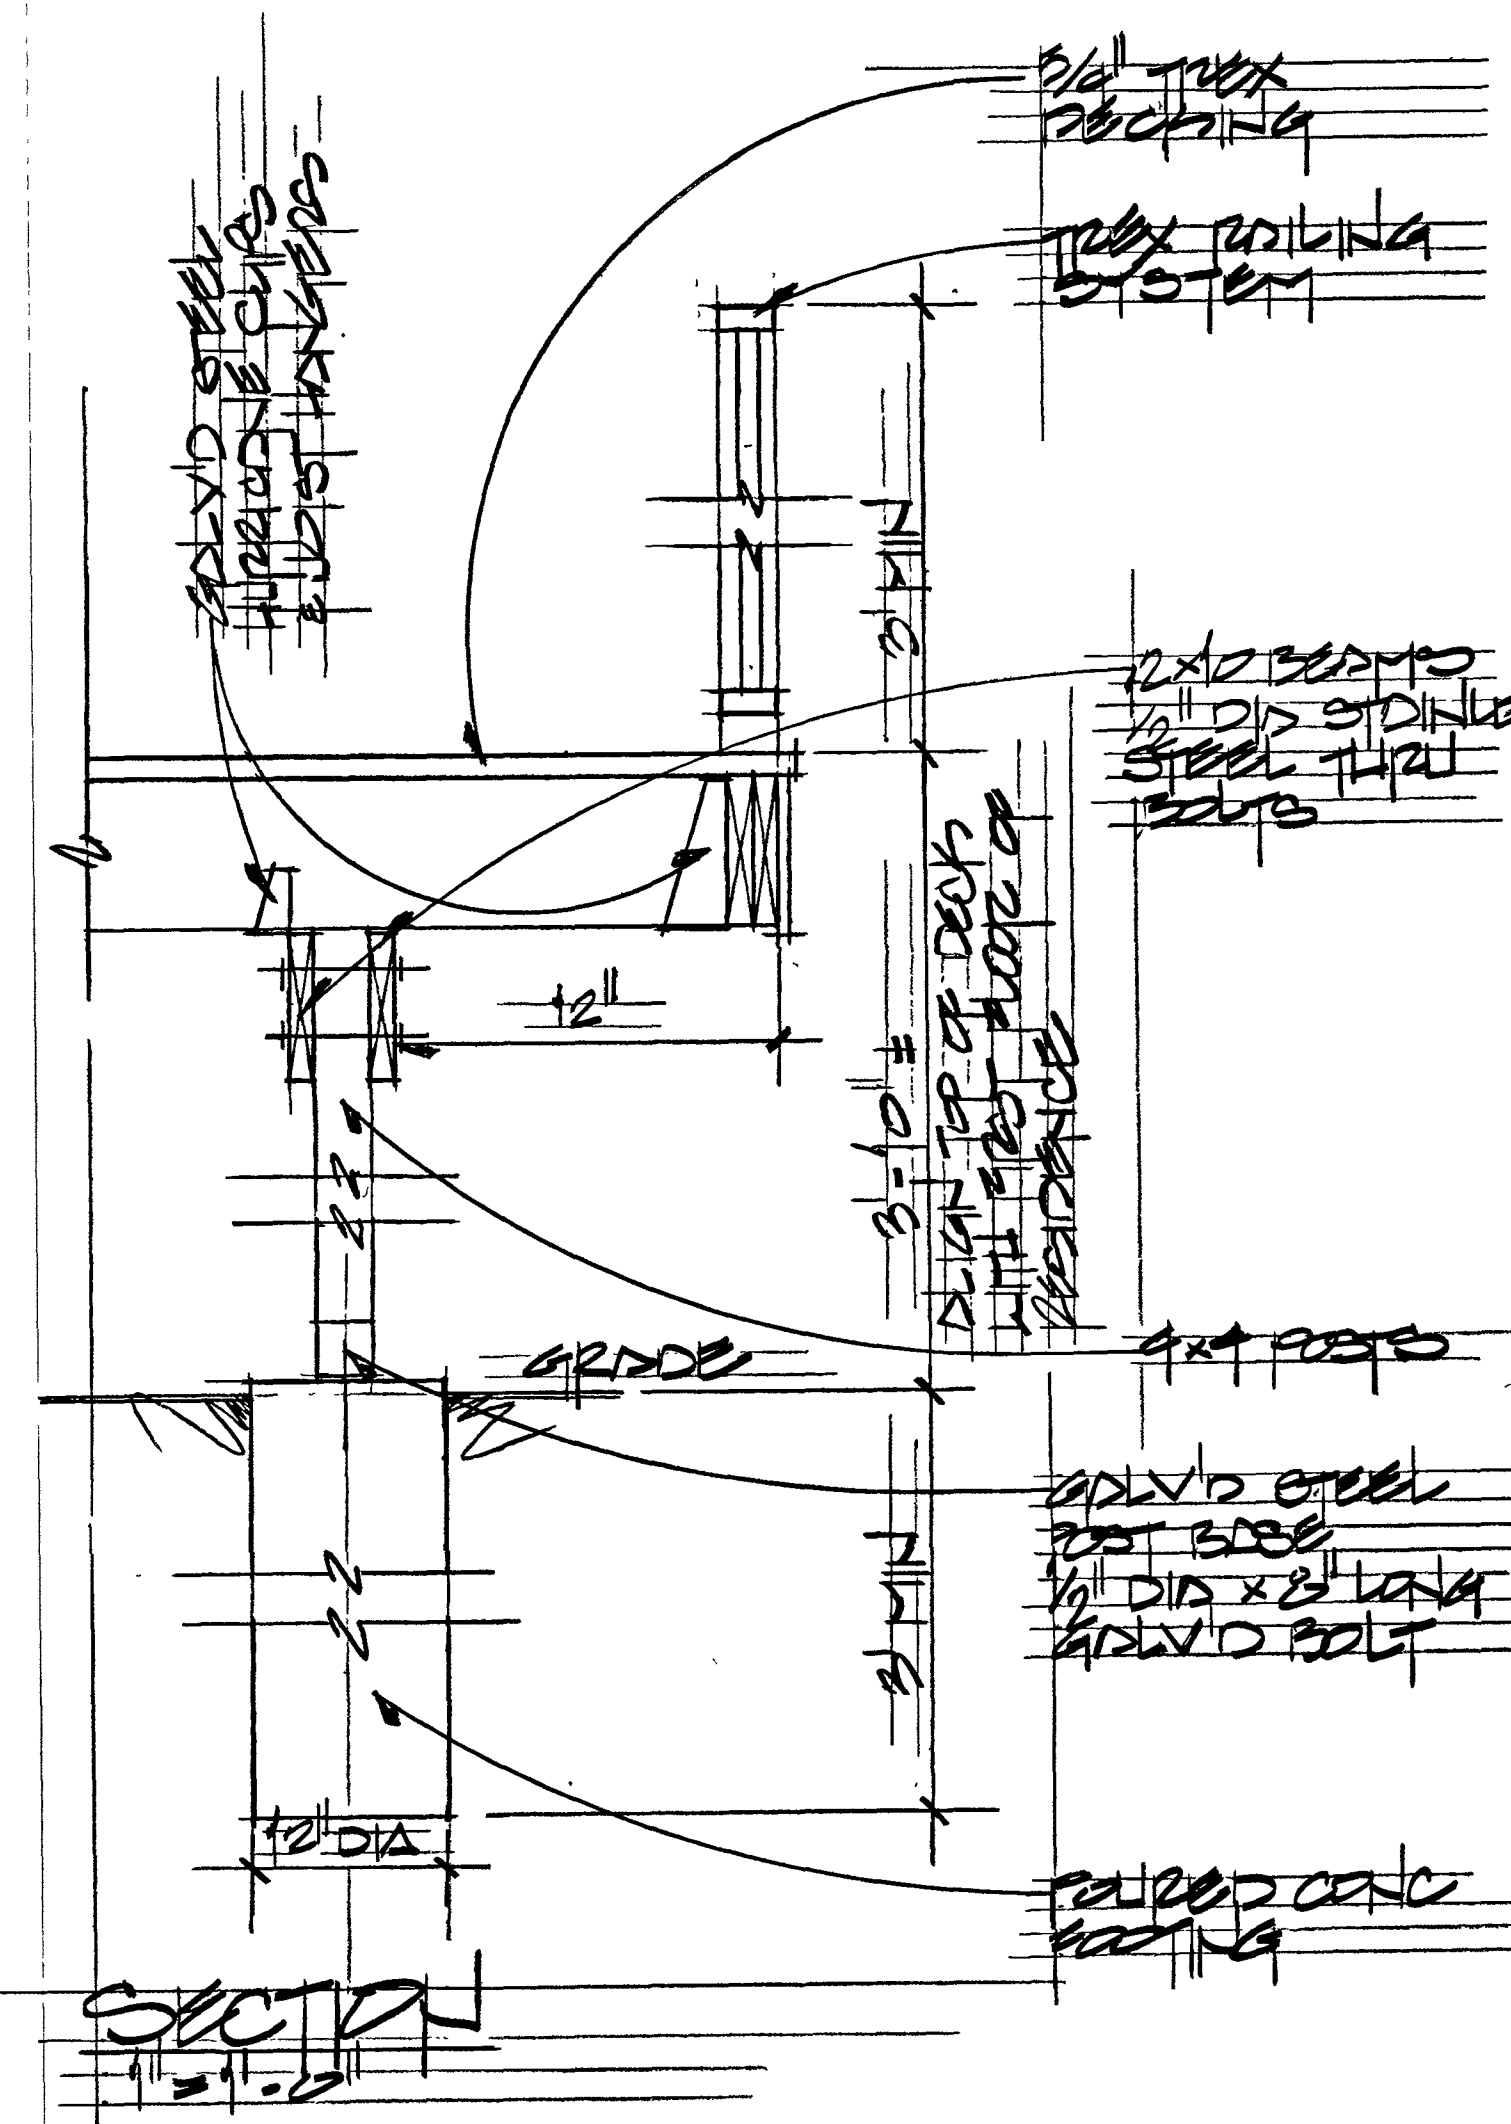 5/4" TREX
DECKING
TREX RAILING
SYSTEM
GALV'D STEEL
HURRICANE CLIPS
& JOIST HANGERS
3' MIN
2x10 BEAMS
1/2" DIA STAINLE
STEEL THRU
BOLTS
12"
3'-0"±
ALIGN TOP OF DECK
WITH 1ST FLOOR OF
RESIDENCE
4x4 POSTS
GRADE
GALV'D STEEL
POST BASE
1/2" DIA x 8" LONG
GALV'D BOLT
3' MIN
12" DIA
POURED CONC
FOOTING
SECTION
1" = 1'-0"